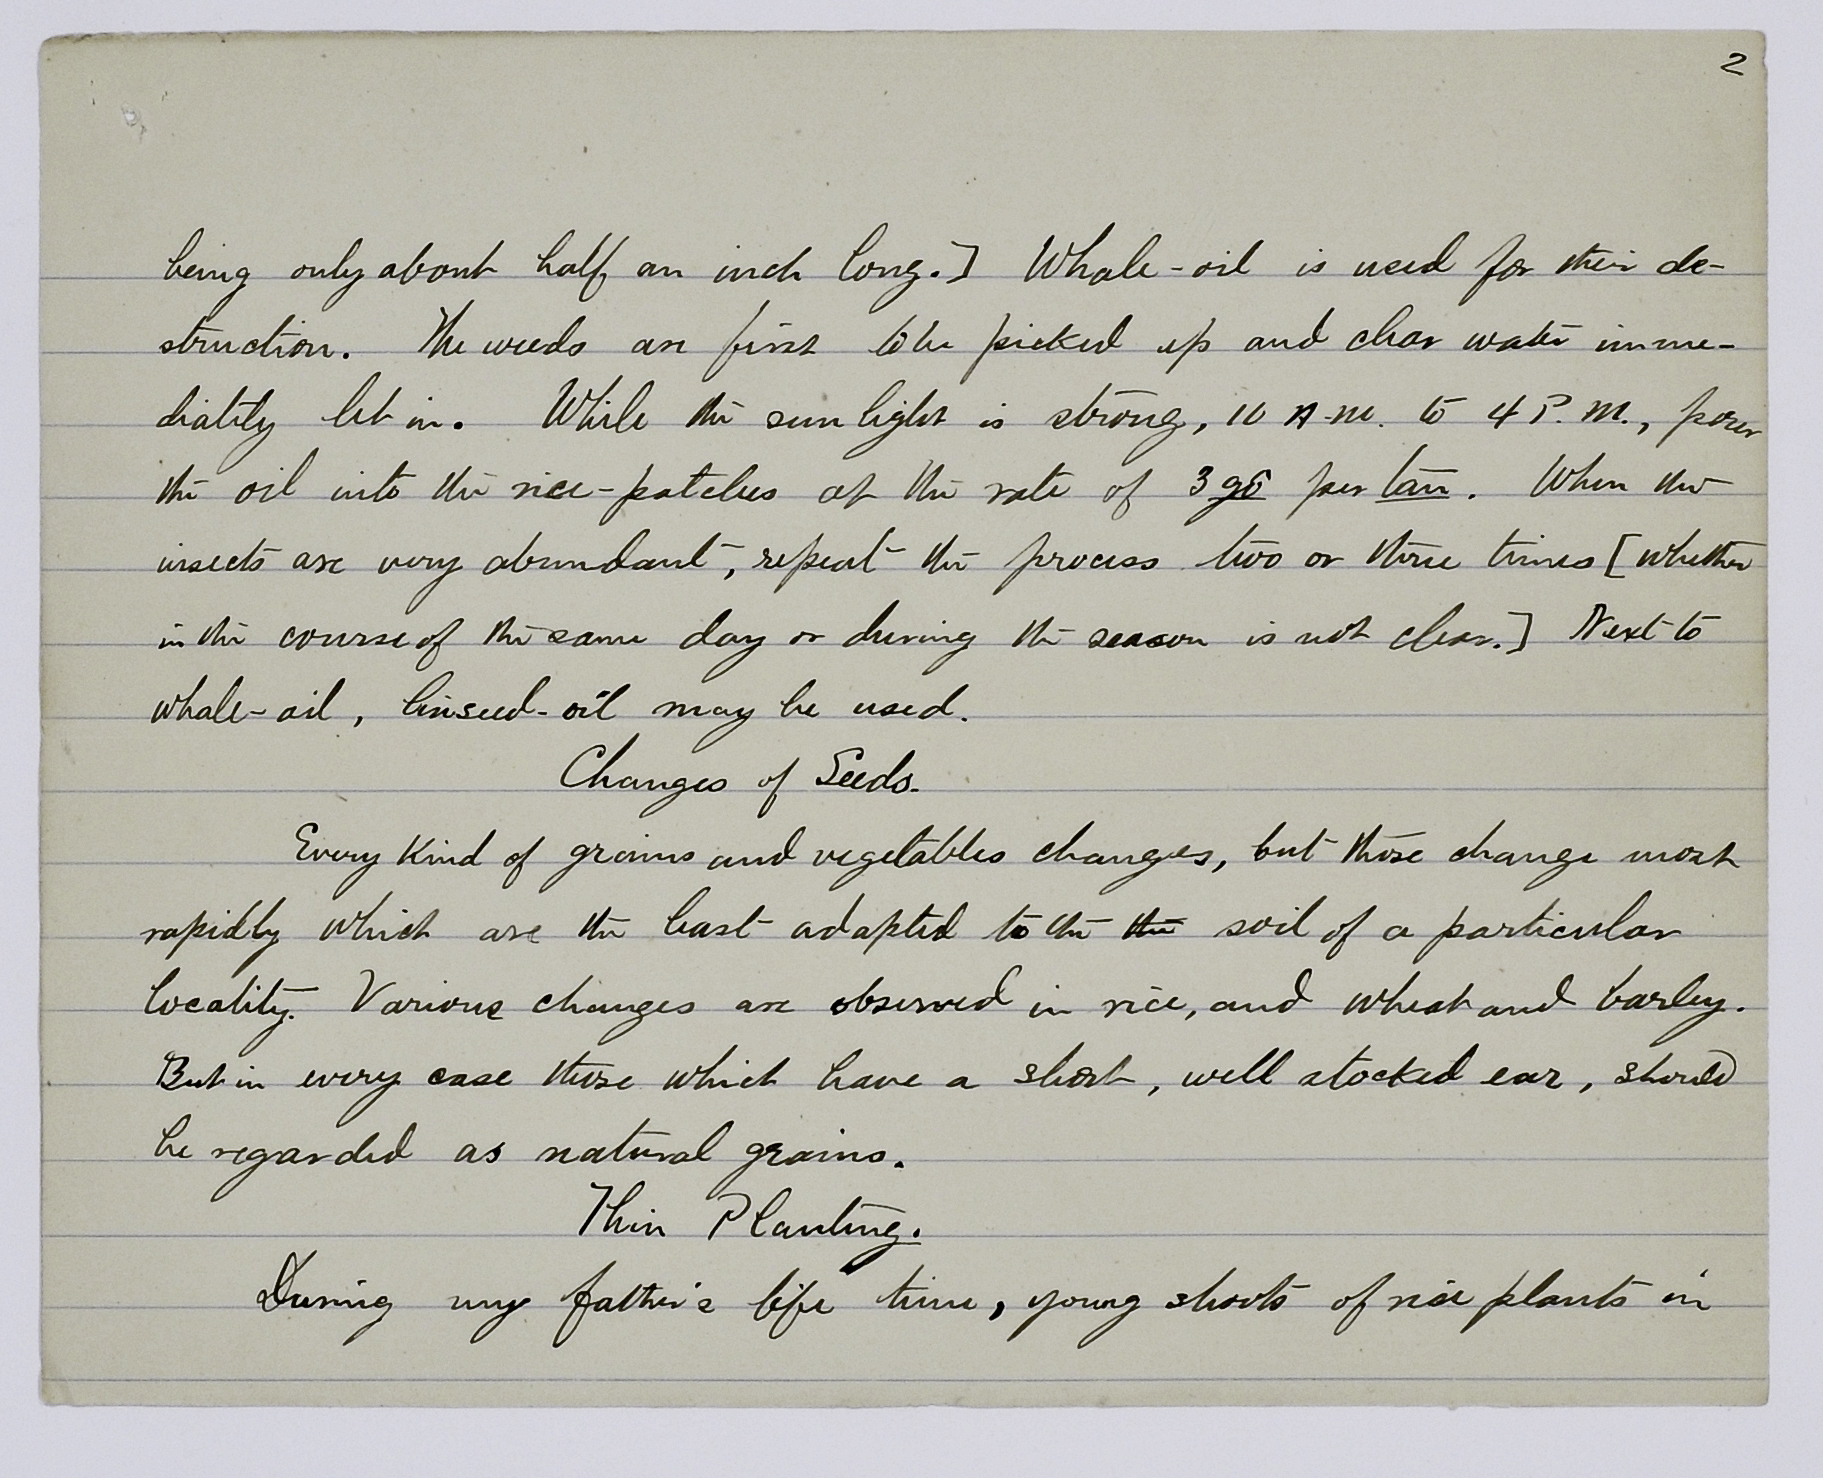 2
being only about half an inch long.] Whale-oil is used for their de-
struction. The weeds are first to be picked up and clear water imme-
diately let in. While the sun light is strong, 10 A.M. to 4 P.M., pour
the oil into the rice-patches at the rate of 3 gō per tan. When the
insects are very abundant, repeat the process two or three times [whether
in the course of the same day or during the season is not clear.] Next to
whale-oil, linseed-oil may be used.
Changes of Seeds.
Every kind of grains and vegetables changes, but those change most
rapidly which are the least adapted to the the soil of a particular
locality. Various changes are observed in rice, and wheat and barley.
But in every case those which have a short, well stocked ear, should
be regarded as natural grains.
Thin Planting.
During my father's life time, young shoots of rice plants in